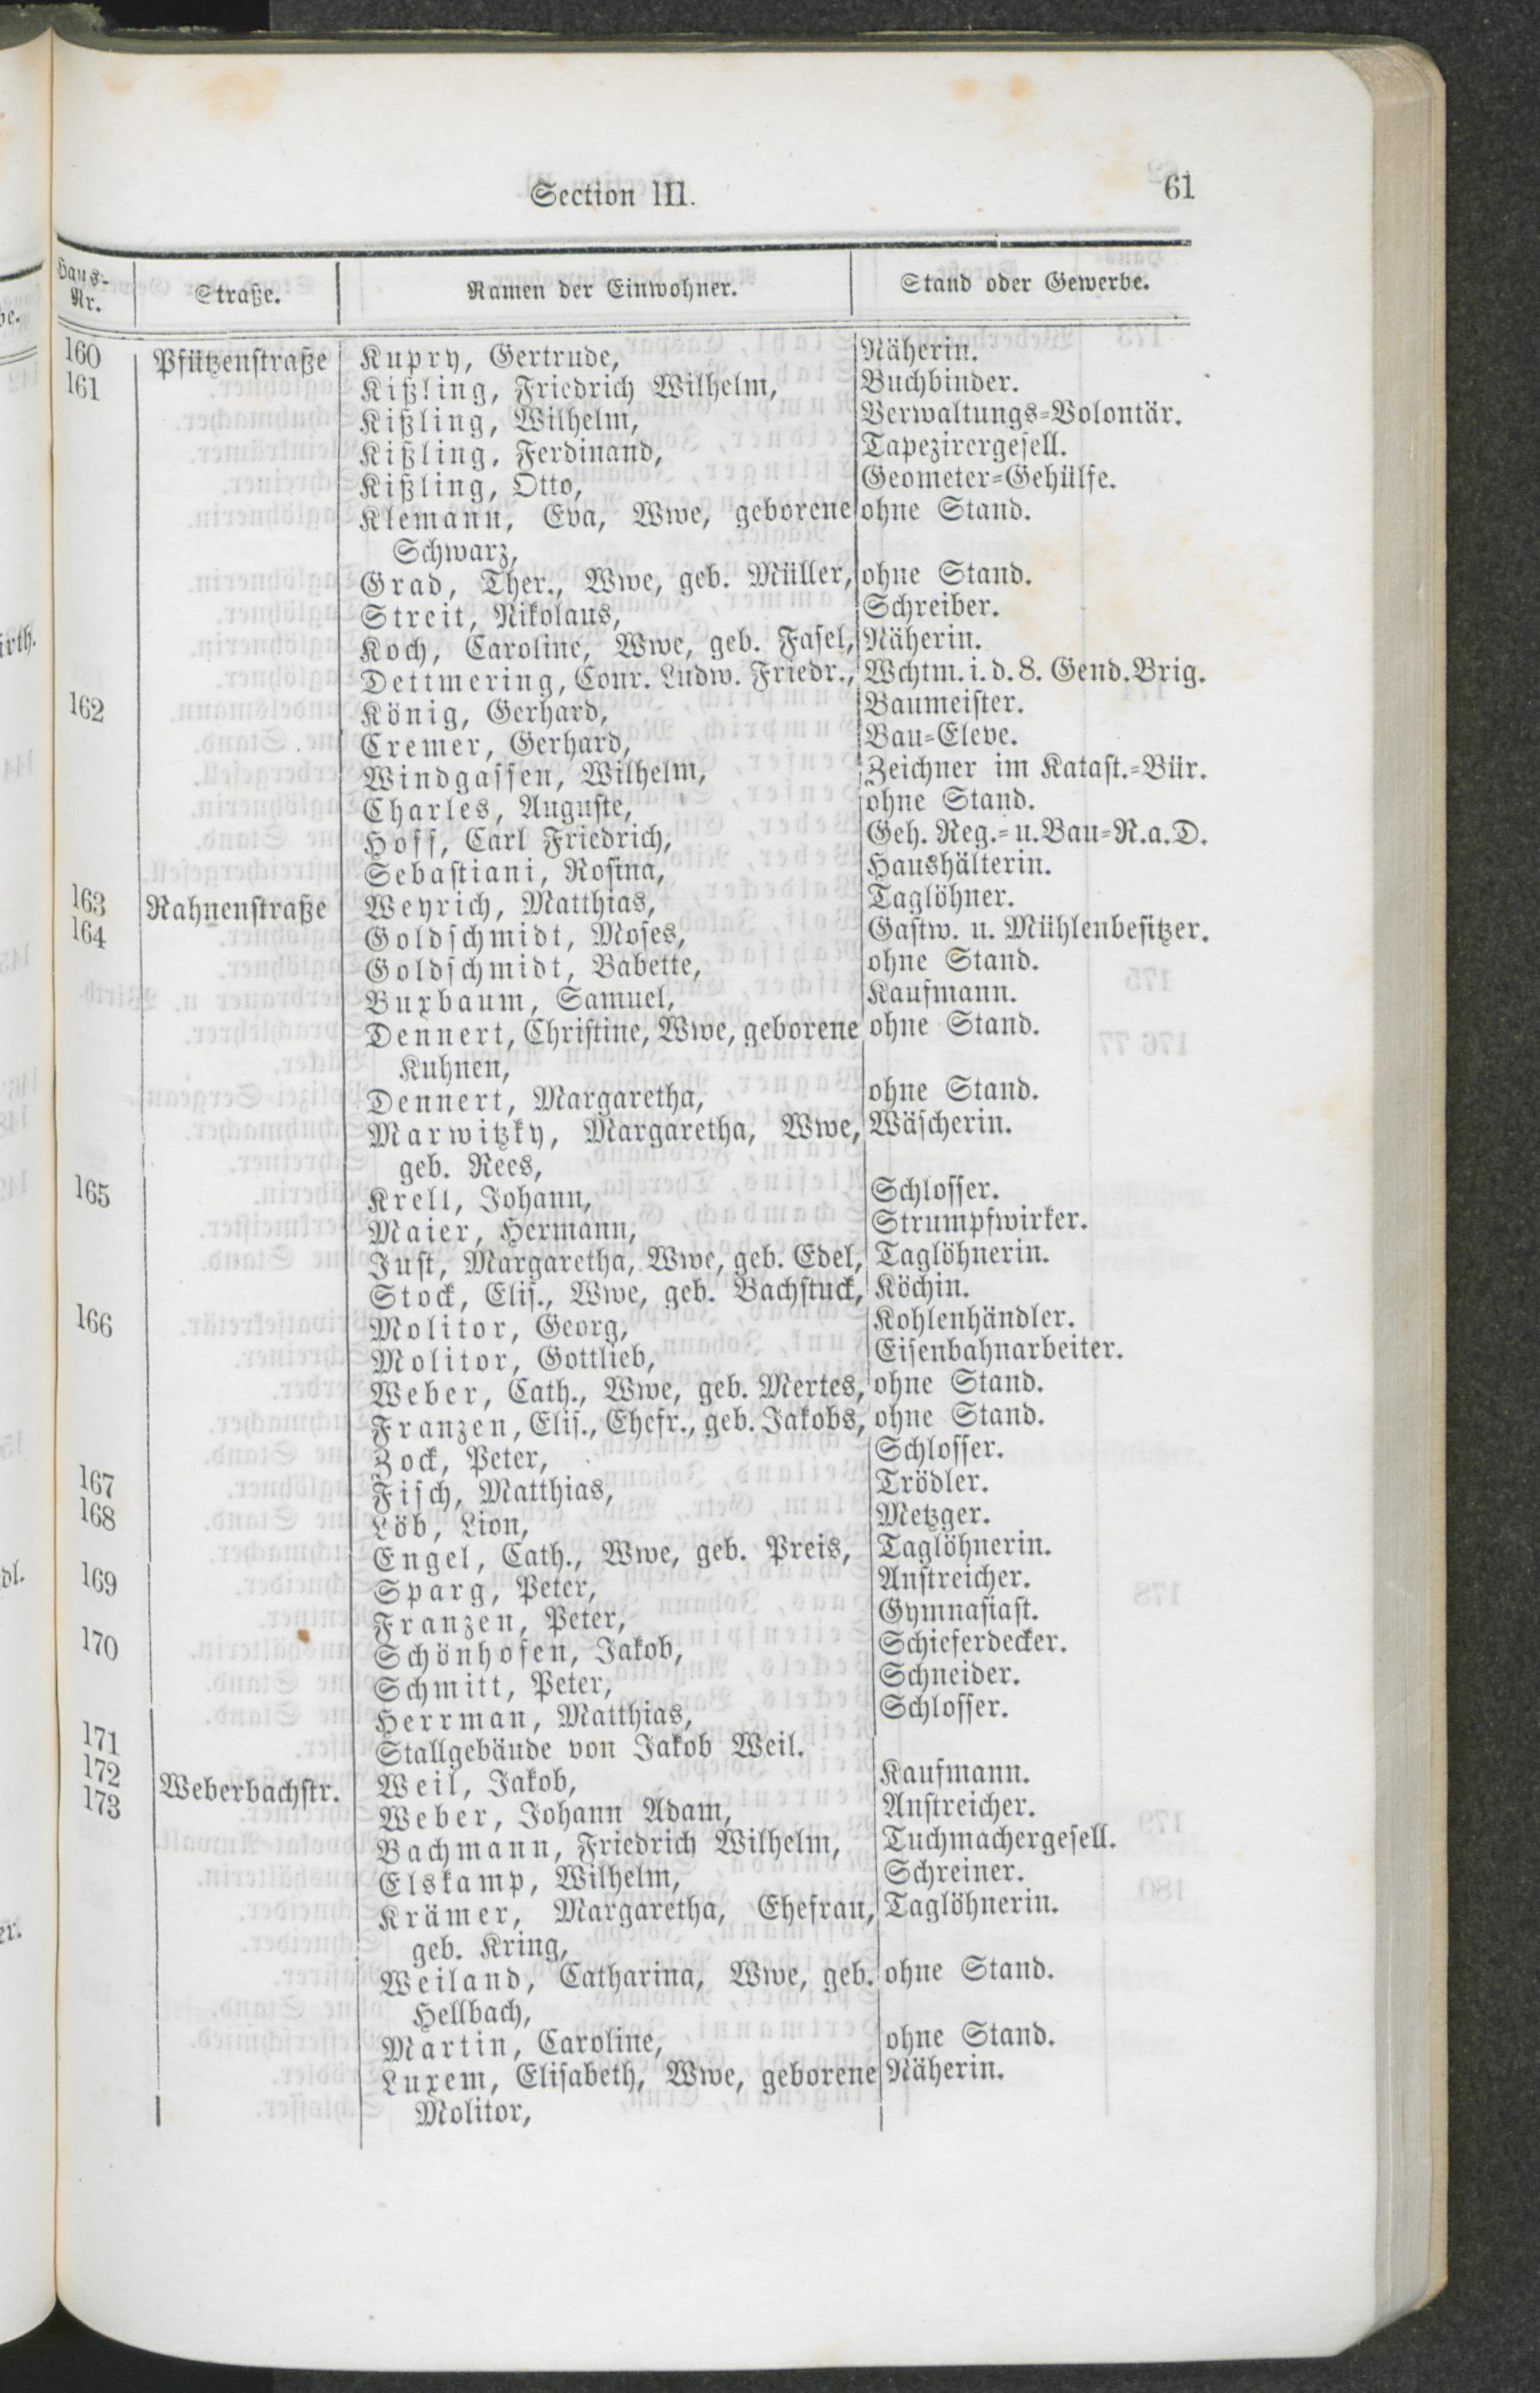 Section III.
61
Haus-Nr. Straße. Namen der Einwohner. Stand oder Gewerbe.
160 Pfützenstraße Kupry, Gertrude, Näherin.
161 Kißling, Friedrich Wilhelm, Buchbinder.
Kißling, Wilhelm, Verwaltungs-Volontär.
Kißling, Ferdinand, Tapezirergesell.
Kißling, Otto, Geometer-Gehülfe.
Klemann, Eva, Wwe, geborene ohne Stand.
Schwarz,
Grad, Ther., Wwe, geb. Müller, ohne Stand.
Streit, Nikolaus, Schreiber.
Koch, Caroline, Wwe, geb. Fasel, Näherin.
Dettmering, Conr. Ludw. Friedr., Wchtm. i. d. 8. Gend. Brig.
162 König, Gerhard, Baumeister.
Cremer, Gerhard, Bau-Eleve.
Windgassen, Wilhelm, Zeichner im Katast.-Bür.
Charles, Auguste, ohne Stand.
Hoff, Carl Friedrich, Geh. Reg.- u. Bau-R. a. D.
Sebastiani, Rosina, Haushälterin.
163 Rahnenstraße Weyrich, Matthias, Taglöhner.
164 Goldschmidt, Moses, Gastw. u. Mühlenbesitzer.
Goldschmidt, Babette, ohne Stand.
Buxbaum, Samuel, Kaufmann.
Dennert, Christine, Wwe, geborene ohne Stand.
Kuhnen,
Dennert, Margaretha, ohne Stand.
Marwitzky, Margaretha, Wwe, Wäscherin.
geb. Rees,
165 Krell, Johann, Schlosser.
Maier, Hermann, Strumpfwirker.
Just, Margaretha, Wwe, geb. Edel, Taglöhnerin.
Stock, Elis., Wwe, geb. Bachstuck, Köchin.
166 Molitor, Georg, Kohlenhändler.
Molitor, Gottlieb, Eisenbahnarbeiter.
Weber, Cath., Wwe, geb. Mertes, ohne Stand.
Franzen, Elis., Ehefr., geb. Jakobs, ohne Stand.
Zock, Peter, Schlosser.
167 Fisch, Matthias, Trödler.
168 Löb, Lion, Metzger.
Engel, Cath., Wwe, geb. Preis, Taglöhnerin.
169 Sparg, Peter, Anstreicher.
Franzen, Peter, Gymnasiast.
170 Schönhofen, Jakob, Schieferdecker.
Schmitt, Peter, Schneider.
Herrman, Matthias, Schlosser.
171 Stallgebäude von Jakob Weil.
172 Weberbachstr. Weil, Jakob, Kaufmann.
173 Weber, Johann Adam, Anstreicher.
Bachmann, Friedrich Wilhelm, Tuchmachergesell.
Elskamp, Wilhelm, Schreiner.
Krämer, Margaretha, Ehefrau, Taglöhnerin.
geb. Kring,
Weiland, Catharina, Wwe, geb. ohne Stand.
Hellbach,
Martin, Caroline, ohne Stand.
Luxem, Elisabeth, Wwe, geborene Näherin.
Molitor,